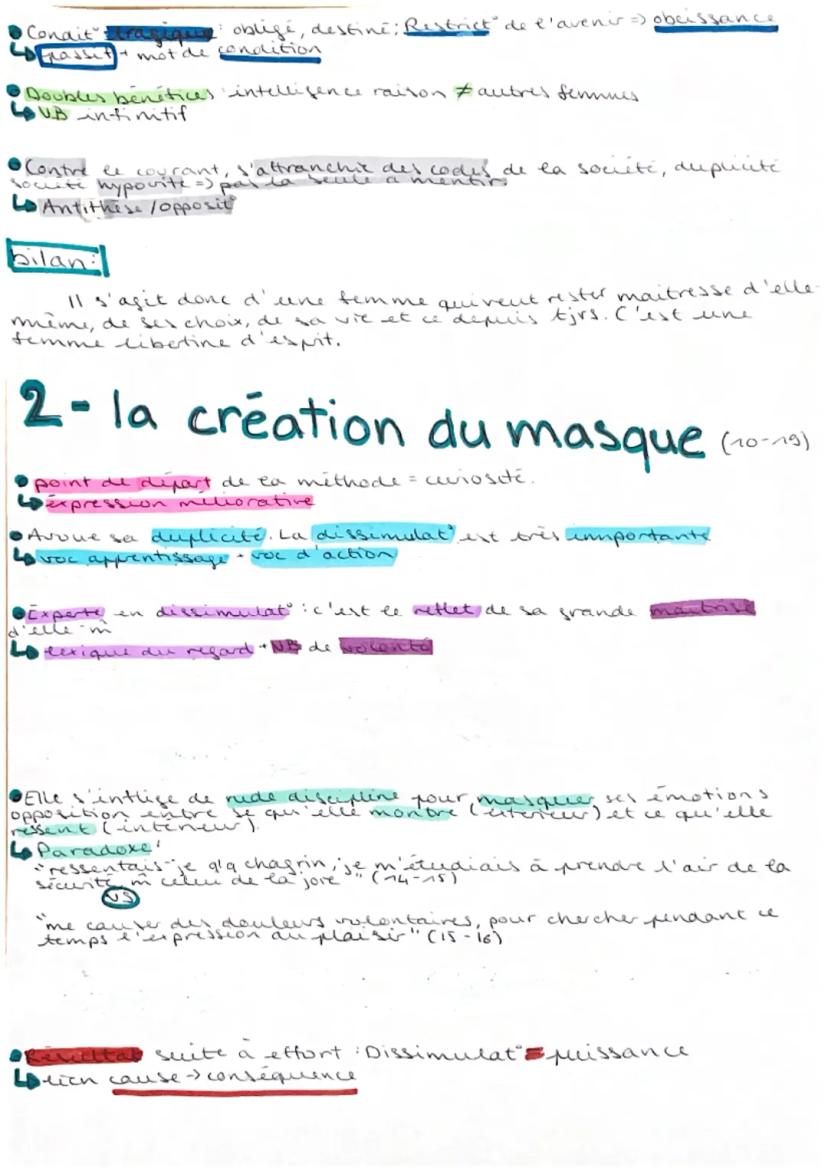 Condit° tragique : obligé, destiné; Restrict° de l'avenir => obeissance
passif + mot de condition
Doubles bénéfices intelligence raison ≠ autres femmes
VB infinitif
Contre le courant, s'affranchir des codes de la société, duplicité
société hypovrite => pas la seule à mentir
Antithèse / opposit°
bilan:
Il s'agit donc d'une femme qui veut rester maitresse d'elle-
même, de ses choix, de sa vie et ce depuis tjrs. C'est une
femme libertine d'esprit.
2- la création du masque (10-19)
point de départ de la méthode = curiosité.
expression méliorative
Avoue sa duplicité. La dissimulat° est très importante
voc apprentissage + voc d'action
Experte en dissimulat° : c'est le reflet de sa grande maitrise
d'elle m̂
lexique du regard + VB de volonté
Elle s'inflige de rude discipline pour masquer ses émotions
opposition entre se qu'elle montre (extérieur) et ce qu'elle
ressent (intérieur).
Paradoxe
"ressentais-je q'q chagrin, je m'étudiais à prendre l'air de la
sécurité, m̂ celui de la joie" (14-15)
VS
"me causer des douleurs volontaires, pour chercher pendant ce
temps l'expression du plaisir" (15-16)
Résultat suite à effort : Dissimulat° = puissance
lien cause -> conséquence